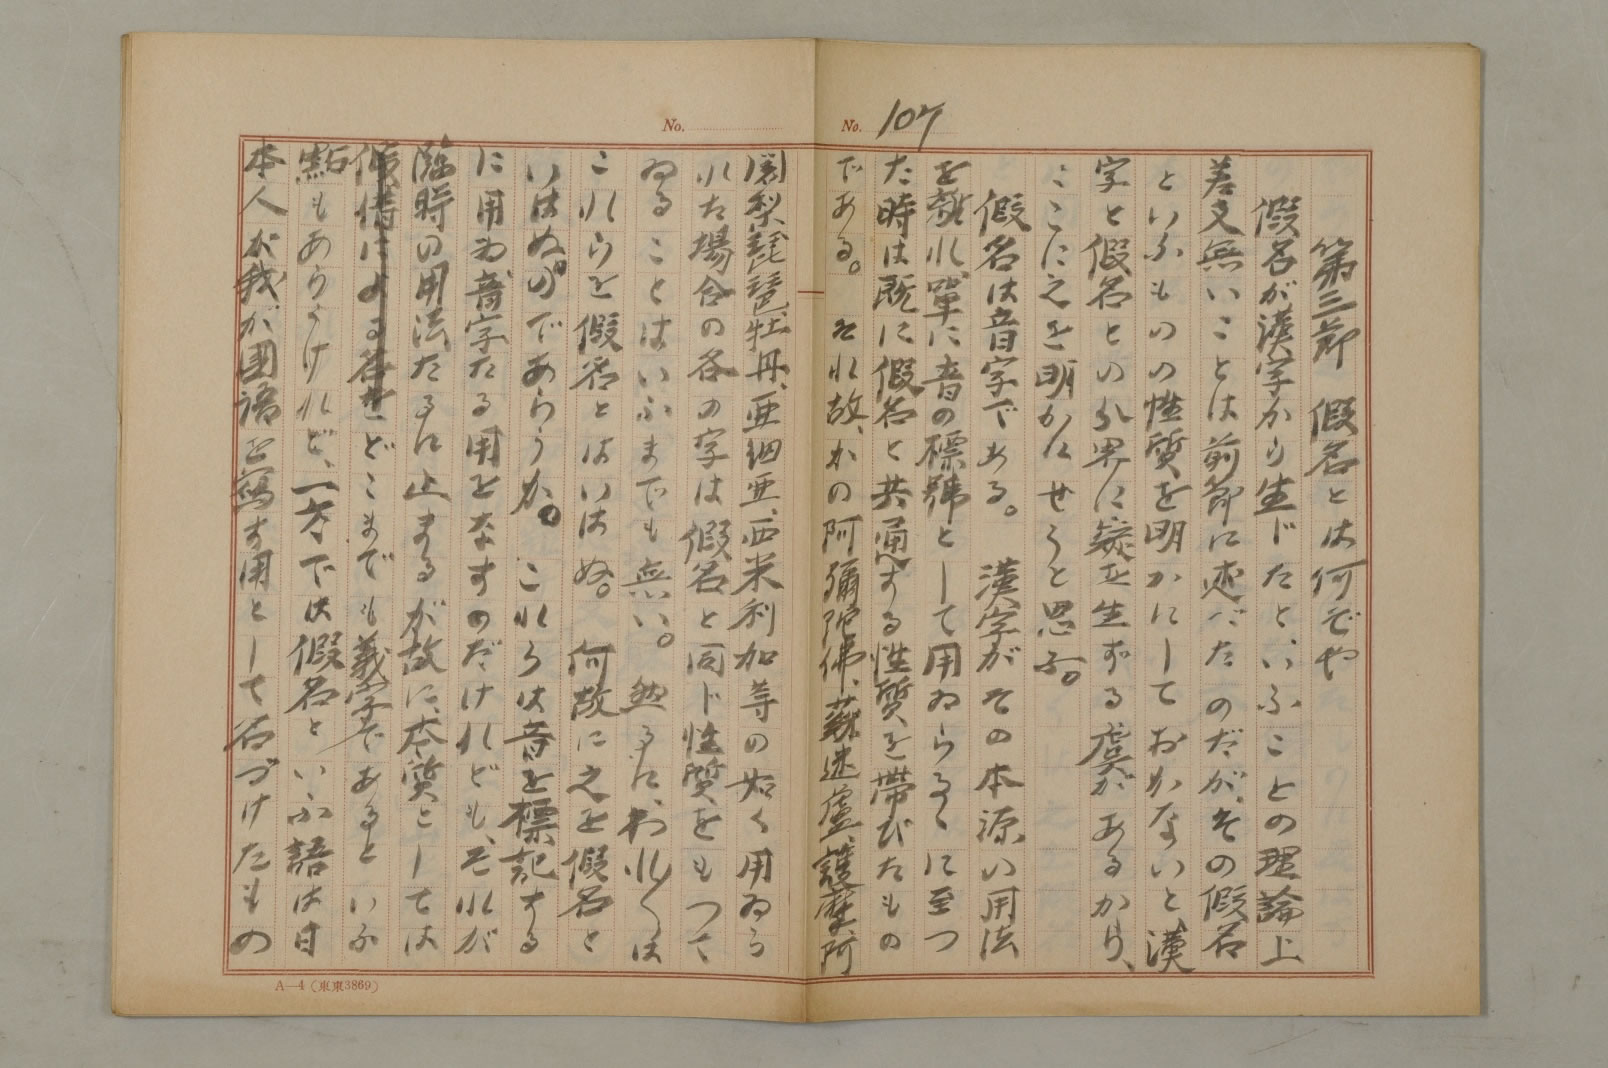 No. 107
第三節　假名とは何ぞや
假名が漢字から生じたと、いふことの理論上
差支無いことは前節に述べたのだが、その假名
といふものの性質を明かにしておかないと漢
字と假名との分界に疑を生ずる虞があるから、
ここに之を明かにせうと思ふ。
假名は音字である。　漢字がその本源い用法
を離れ、單に音の標號として用ゐらるゝに至つ
た時は既に假名と共通する性質を帶びたもの
である。　それ故、かの阿彌陀佛、蘇迷盧、護摩、阿
No.
闍梨、琵琶、牡丹、亜細亜、西米利加等の如く用ゐら
れた場合の各の字は假名と同じ性質をもつて
ゐることはいふまでも無い。　然るに、われ〳〵は
これらを假名とはいはぬ。　何故に之を假名と
いはぬのであらうか。　これらは音を標記する
に用ゐ、音字たる用をなすのだけれども、それが
臨時の用法たるに止まるが故に、本質としては
どこまでも義字であるといふ
點もあらうけれど、一方では假名といふ語は日
本人が我が國語を寫す用として名づけたもの
A—4 (東東3869)